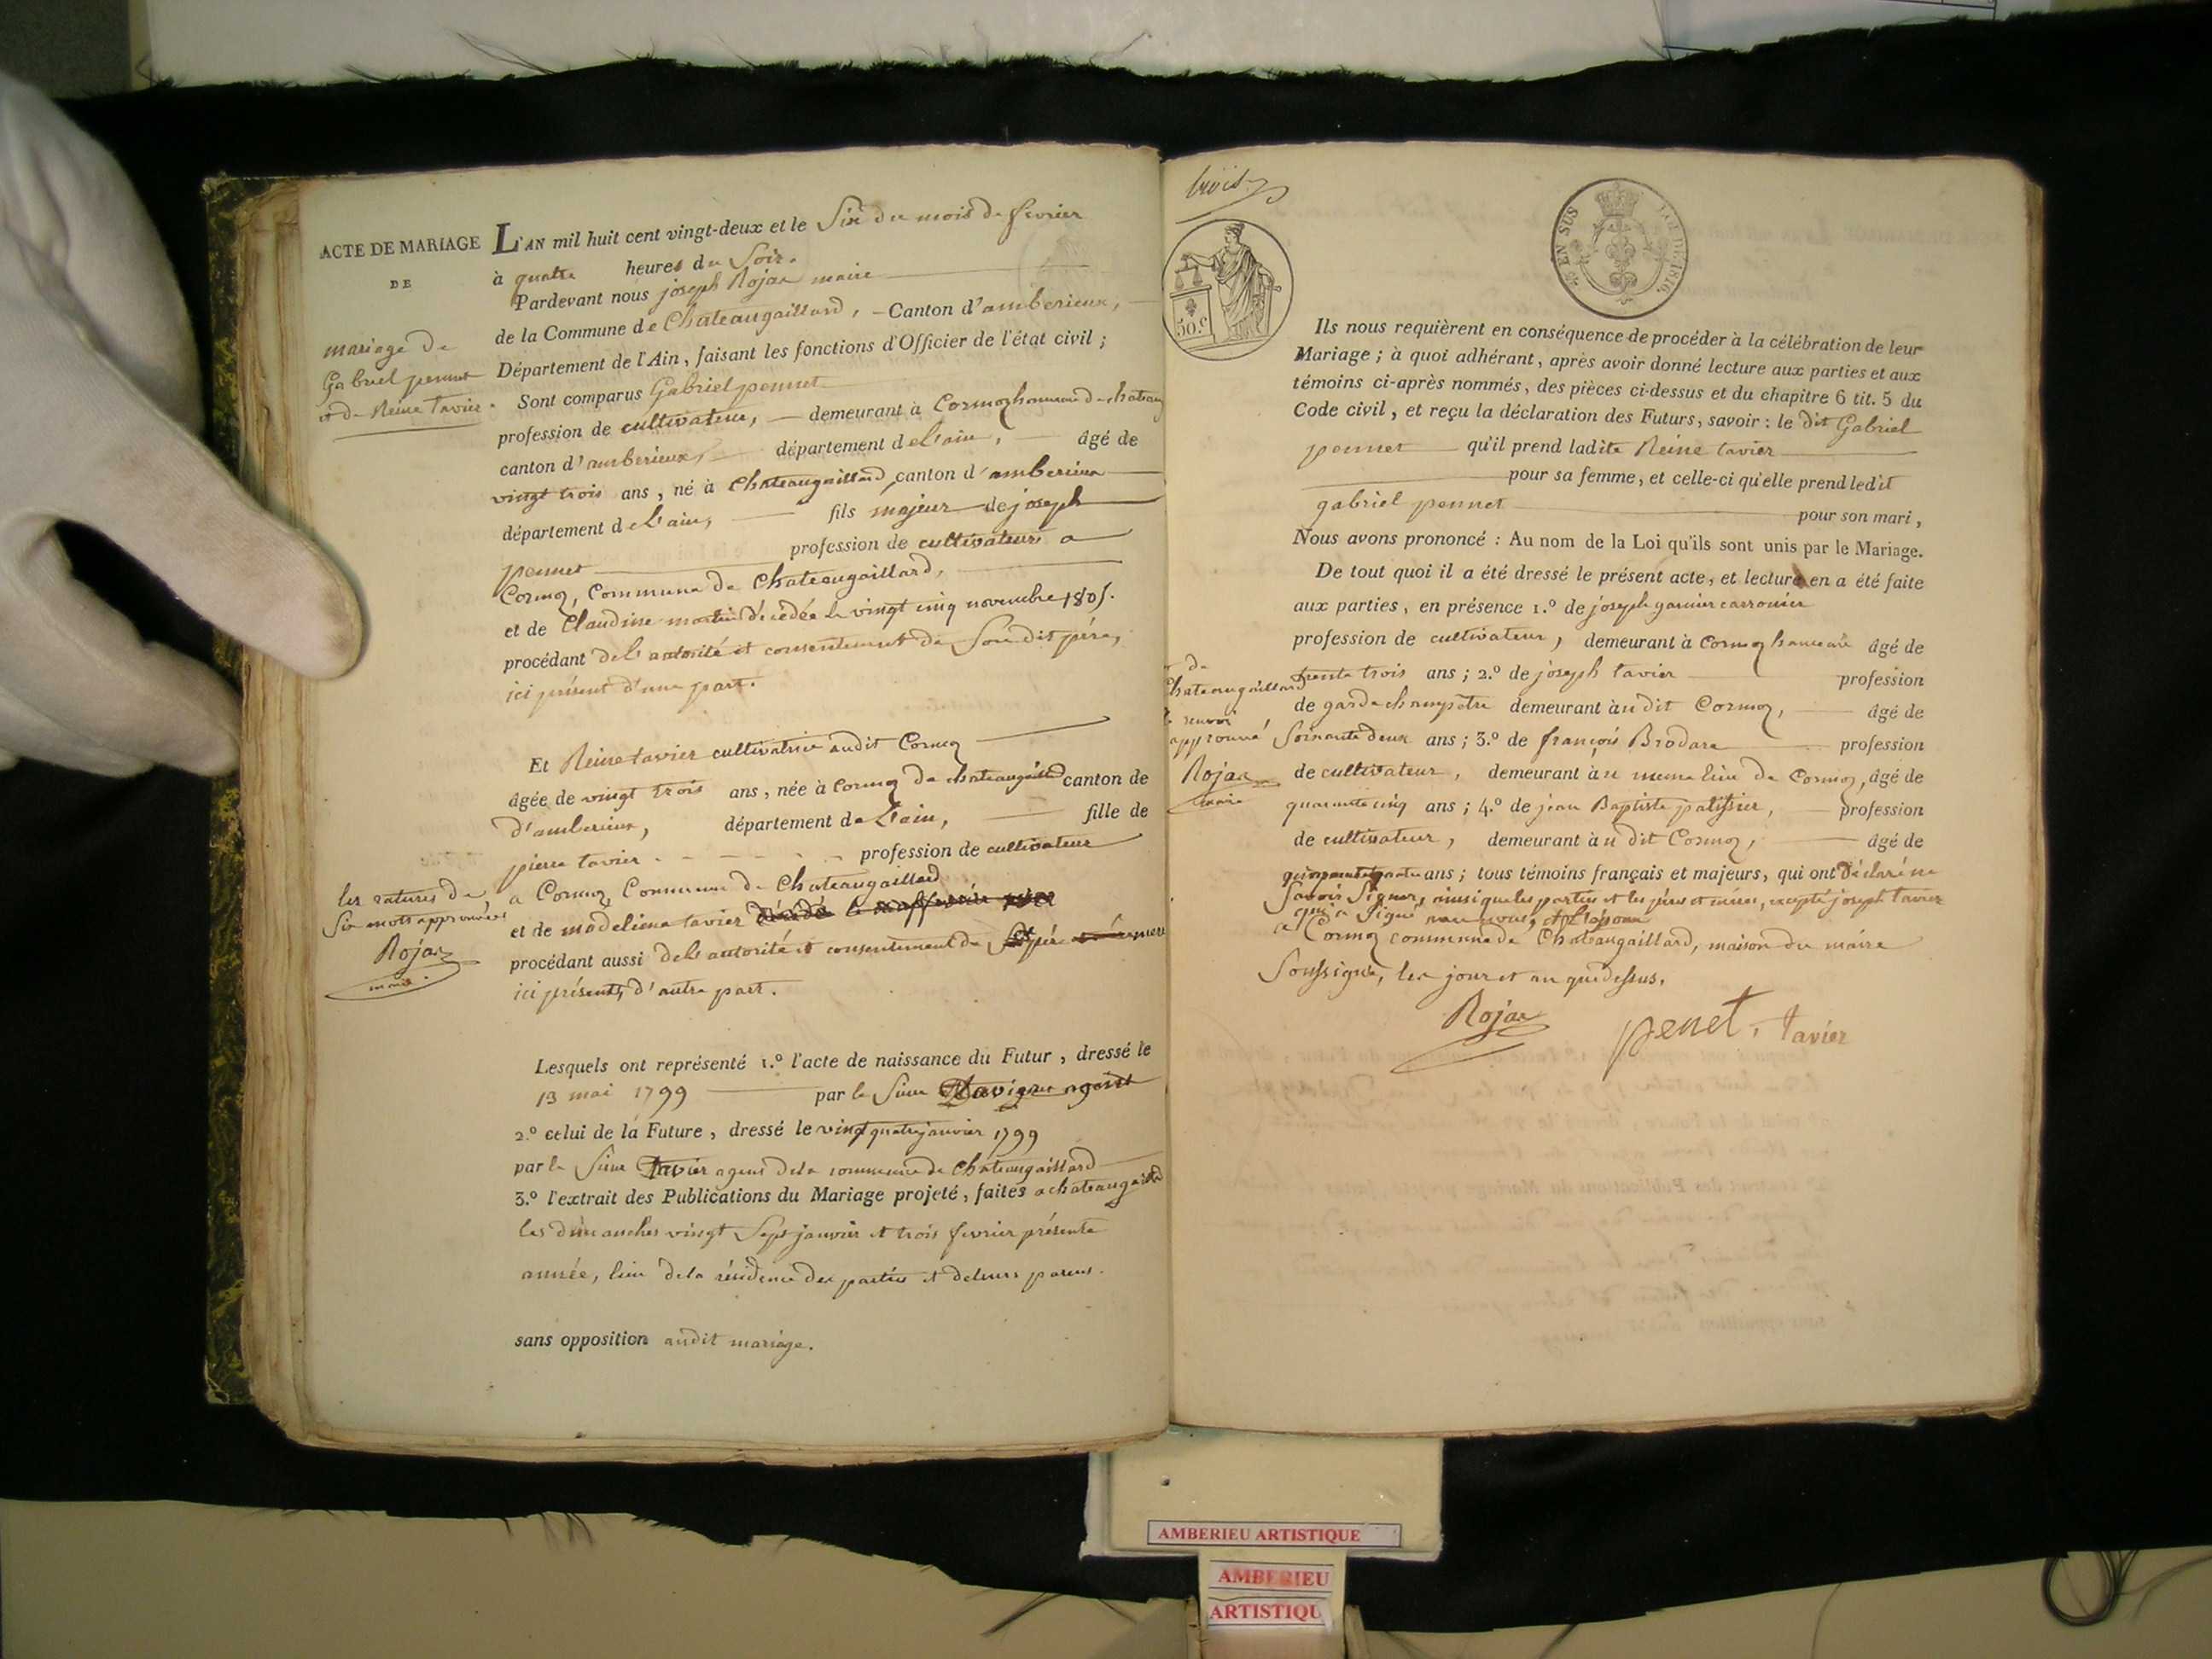 ACTE DE MARIAGE
DE
mariage de
Gabriel pennet
et de Reine tavier.
L'AN mil huit cent vingt-deux et le Six du mois de fevrier
à quatre heures du Soir.
Pardevant nous joseph Rojat maire
de la Commune de Chateaugaillard, - Canton d'amberieux,
Département de l'Ain, faisant les fonctions d'Officier de l'état civil ;
Sont comparus Gabriel pennet
profession de cultivateur, demeurant à Cormoz hameau de chateaug
canton d'amberieux, département de L'ain, âgé de
vingt trois ans, né à Chateaugaillard, canton d'amberieux
département de L'ain, fils majeur de joseph
pennet profession de cultivateur a
Cormoz, Commune de Chateaugaillard,
et de Claudine martin décédée le vingt cinq novembre 1805.
procédant de l'autorité et consentement de Son dit père,
ici présent d'une part.
Et Reine tavier cultivatrice audit Cormoz
âgée de vingt trois ans, née à Cormoz de chateaugaillard canton de
d'amberieux, département de L'ain, fille de
pierre tavier profession de cultivateur
a Cormoz, Commune de Chateaugaillard
et de madeleine tavier
procédant aussi de l'autorité et consentement de père mere
ici présents, d'autre part.
les ratures de
Six mots approuvées
Rojat
maire
Lesquels ont représenté 1.º l'acte de naissance du Futur, dressé le
13 mai 1799 par le Sieur agent
2.º celui de la Future, dressé le vingt quatre janvier 1799
par le Sieur tavier agent de la commune de Chateaugaillard
3.º l'extrait des Publications du Mariage projeté, faites a chateaugaillard
les dimanches vingt Sept janvier et trois fevrier présente
année, lieu de la résidence des parties et de leurs parens.
sans opposition audit mariage.
trois
50.c
EN SUS
TIMB. DE 1816.
Ils nous requièrent en conséquence de procéder à la célébration de leur
Mariage ; à quoi adhérant, après avoir donné lecture aux parties et aux
témoins ci-après nommés, des pièces ci-dessus et du chapitre 6 tit. 5 du
Code civil, et reçu la déclaration des Futurs, savoir : le dit Gabriel
pennet qu'il prend ladite Reine tavier
pour sa femme, et celle-ci qu'elle prend ledit
gabriel pennet pour son mari,
Nous avons prononcé : Au nom de la Loi qu'ils sont unis par le Mariage.
De tout quoi il a été dressé le présent acte, et lecture en a été faite
aux parties, en présence 1.º de joseph garnier carronier
profession de cultivateur, demeurant à Cormoz hameau âgé de
trente trois ans ; 2.º de joseph tavier profession
de garde champetre demeurant àudit Cormoz, âgé de
Soixante deux ans ; 3.º de françois Brodare profession
de cultivateur, demeurant àu meme lieu de Cormoz, âgé de
quarante cinq ans ; 4.º de jean Baptiste patissier, profession
de cultivateur, demeurant àu dit Cormoz, âgé de
cinquante quatre ans ; tous témoins français et majeurs, qui ont déclaré ne
Savoir Signer, ainsi que les parties et les pères et mères, excepté joseph tavier
qui a Signé avec nous,
a Cormoz commune de Chateaugaillard, maison du maire
Soussigné, les jour et an que dessus.
de
Chateaugaillard
le renvoi
approuvé
Rojat
maire
Rojat
penet.
tavier
AMBERIEU ARTISTIQUE
AMBERIEU
ARTISTIQU